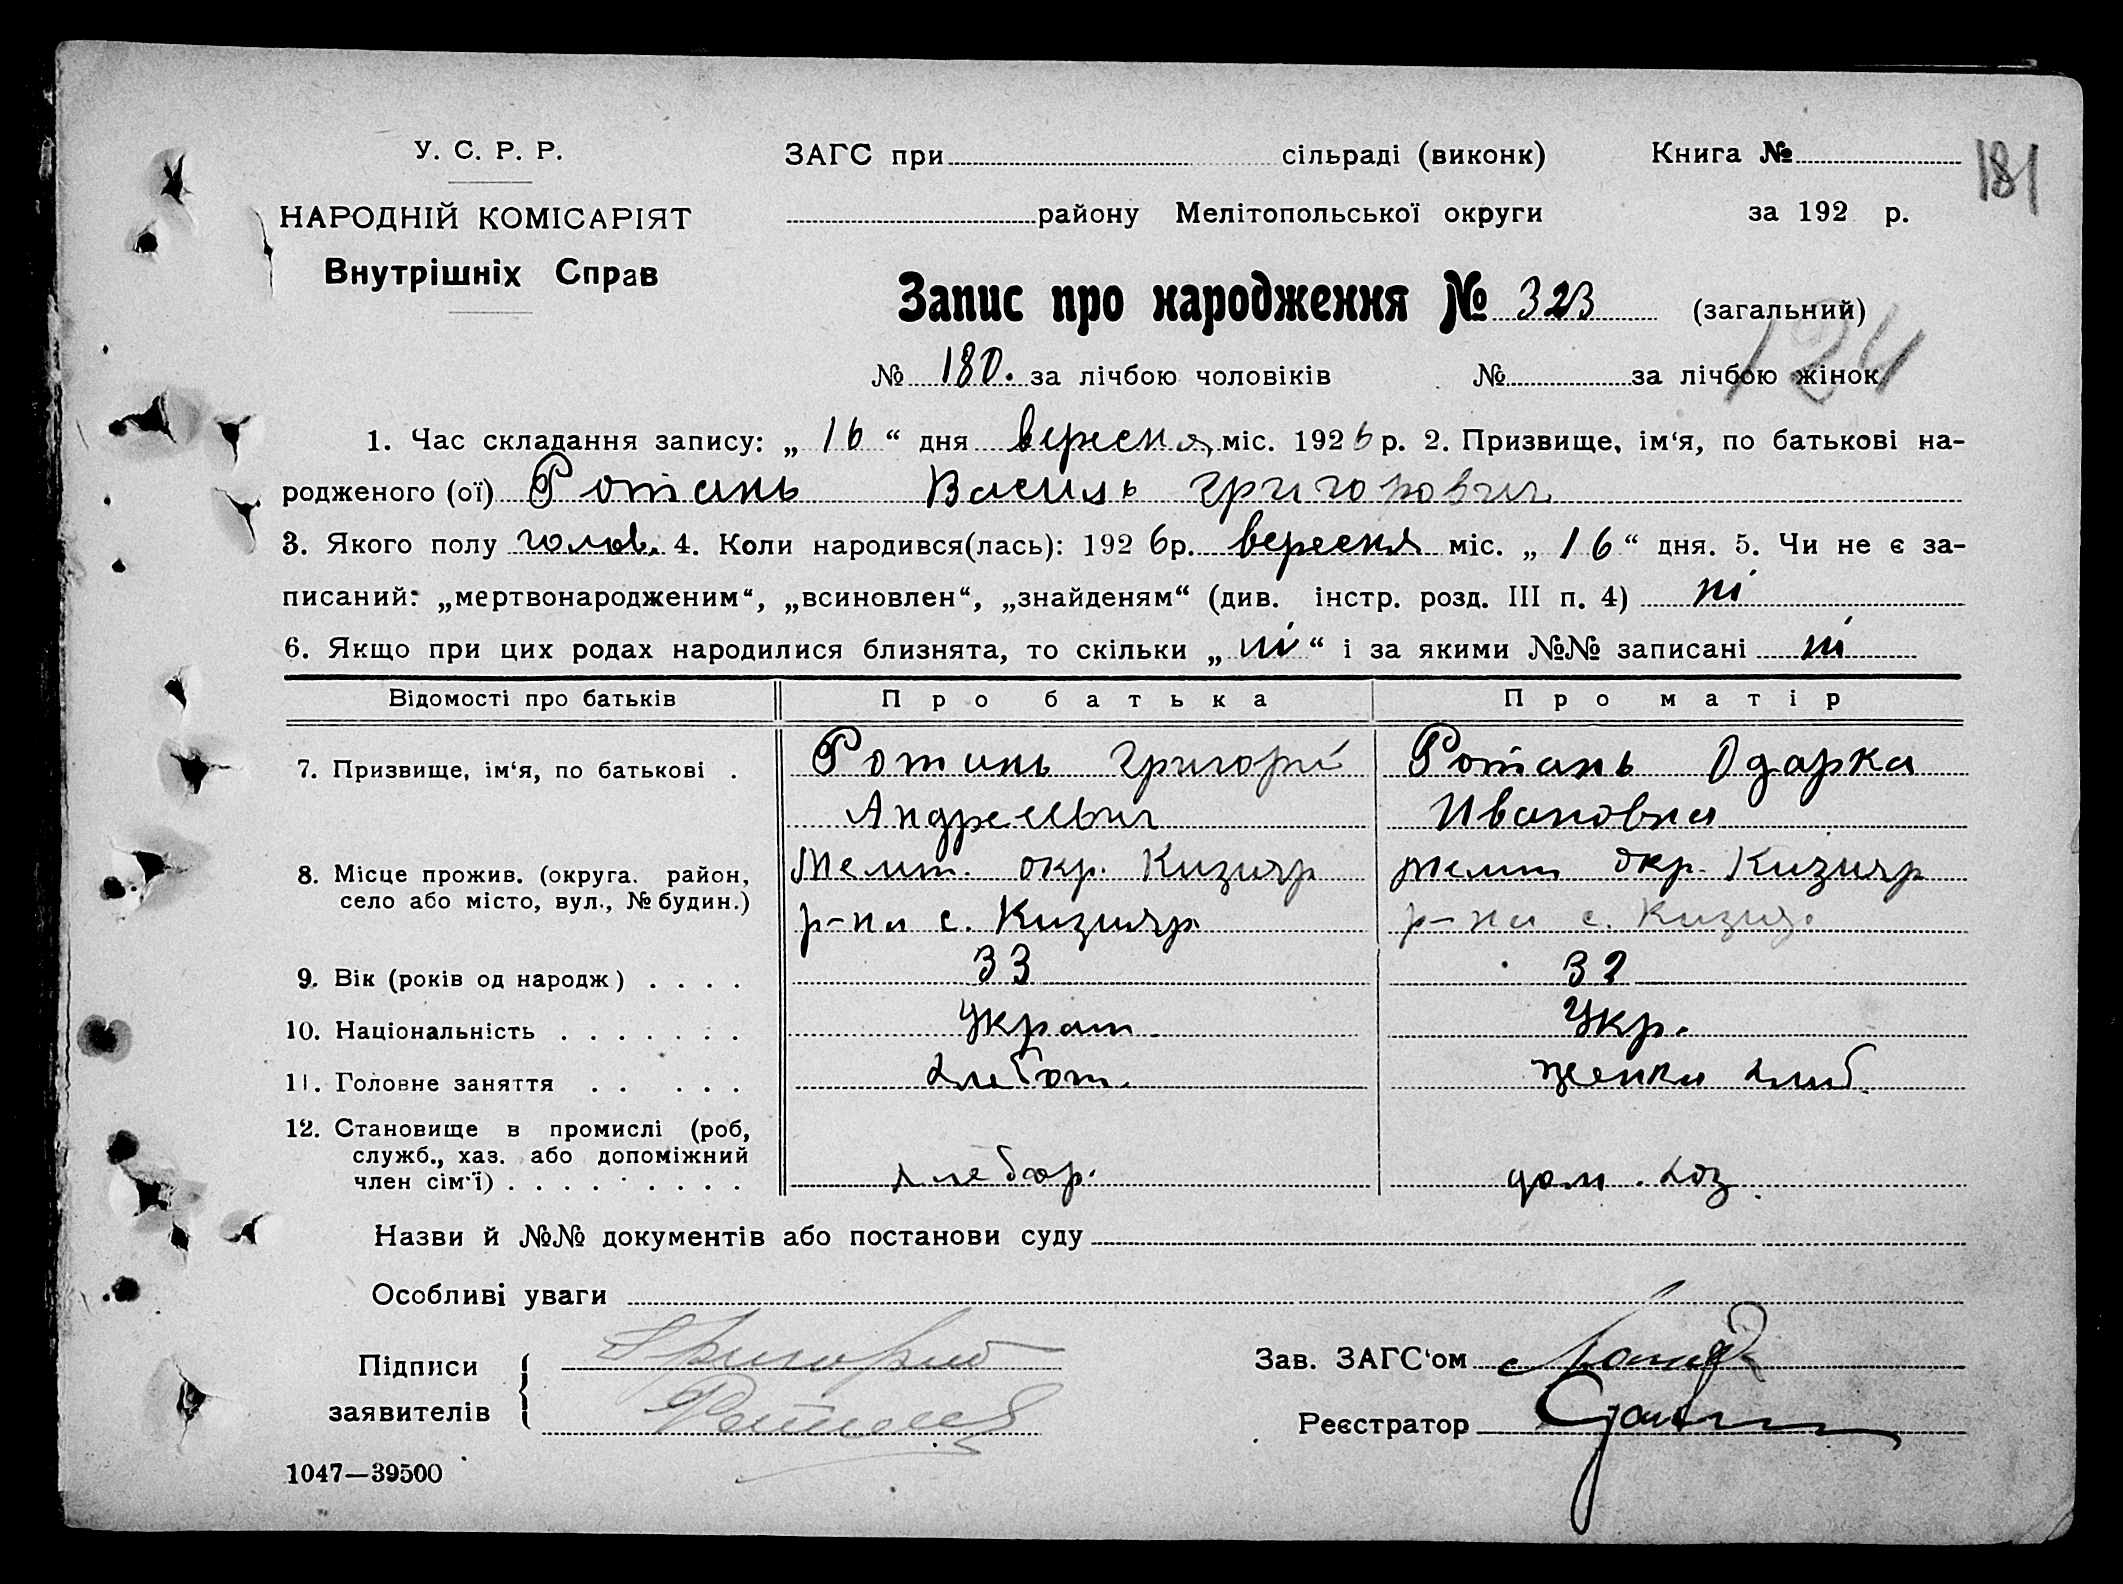 У. С. Р. Р.
НАРОДНІЙ КОМІСАРІЯТ
Внутрішніх Справ
ЗАГС при сільраді (виконк) Книга №
181
району Мелітопольської округи за 192 р.
Запис про народження № 323 (загальний)
124
№ 180. за лічбою чоловіків № за лічбою жінок
1. Час складання запису: „ 16 “ дня вересня міс. 1926 р. 2. Призвище, ім‘я, по батькові на-
родженого (ої) Ротань Василь Григорович
3. Якого полу чолов. 4. Коли народився(лась): 1926р. вересня міс. „ 16 “ дня. 5. Чи не є за-
писаний: „мертвонародженим“, „всиновлен“, „знайденям“ (див. інстр. розд. III п. 4) ні
6. Якщо при цих родах народилися близнята, то скільки „ ні “ і за якими №№ записані ні
Відомості про батьків Про батька Про матір
7. Призвище, ім‘я, по батькові . Ротань Григорій Ротань Одарка
Андреевич Ивановна
8. Місце прожив. (округа. район, Меліт. окр. Кизияр Меліт окр. Кизияр
село або місто, вул., № будин.) р-на с. Кизияр р-на с. Кизия.
9. Вік (років од народж) . . . . 33 32
10. Національність . . . . . . . Украт. Укр.
11. Головне заняття . . . . . хлебоп. женка хлиб.
12. Становище в промислі (роб,
служб., хаз. або допоміжний
член сім'ї) . . . . . . . . . хлебор. дом. хоз.
Назви й №№ документів або постанови суду
Особливі уваги
Підписи Григорий Зав. ЗАГС‘ом
заявителів Реєстратор
1047—39500